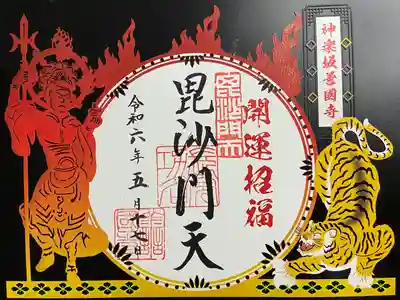 神楽坂善國寺
開運招福
毘沙門天
毘沙門天
令和六年五月十七日